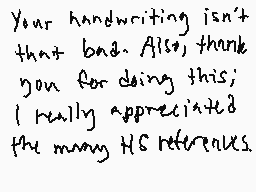 Your handwriting isn't
that bad. Also, thank
you for doing this;
I really appreciated
the many HS references.